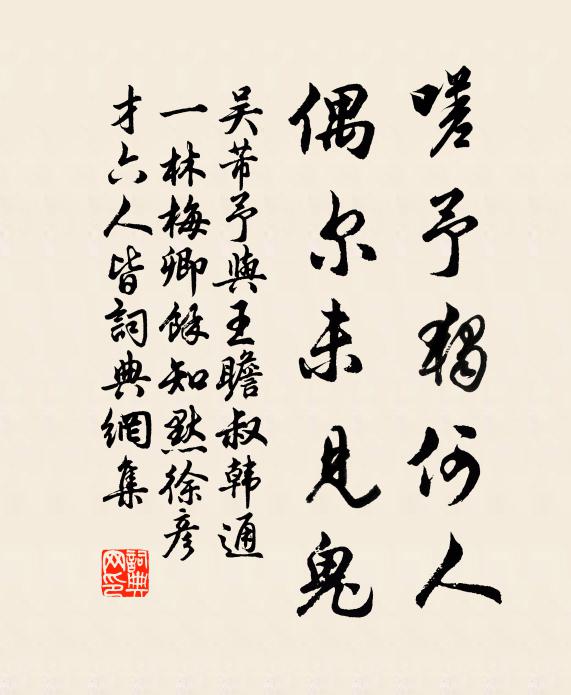 嗟予獨何人
偶尔未見鬼
吴芾予與王瞻叔韩通
一林梅卿餘知默徐彦
才六人皆詞典網集
詞典网印